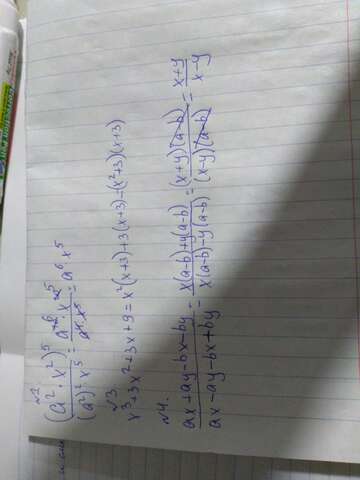 №1.
(a²·x²)⁵/(a²)²x⁵ = a¹⁰·x¹⁰/a⁴·x⁵ = a⁶·x⁵
√3.
x³+3x²+3x+9=x²(x+3)+3(x+3)=(x²+3)(x+3)
№4.
ax+ay-bx-by/ax-ay-bx+by = x(a-b)+y(a-b)/x(a-b)-y(a-b) = (x+y)(a-b)/(x-y)(a-b) = x+y/x-y